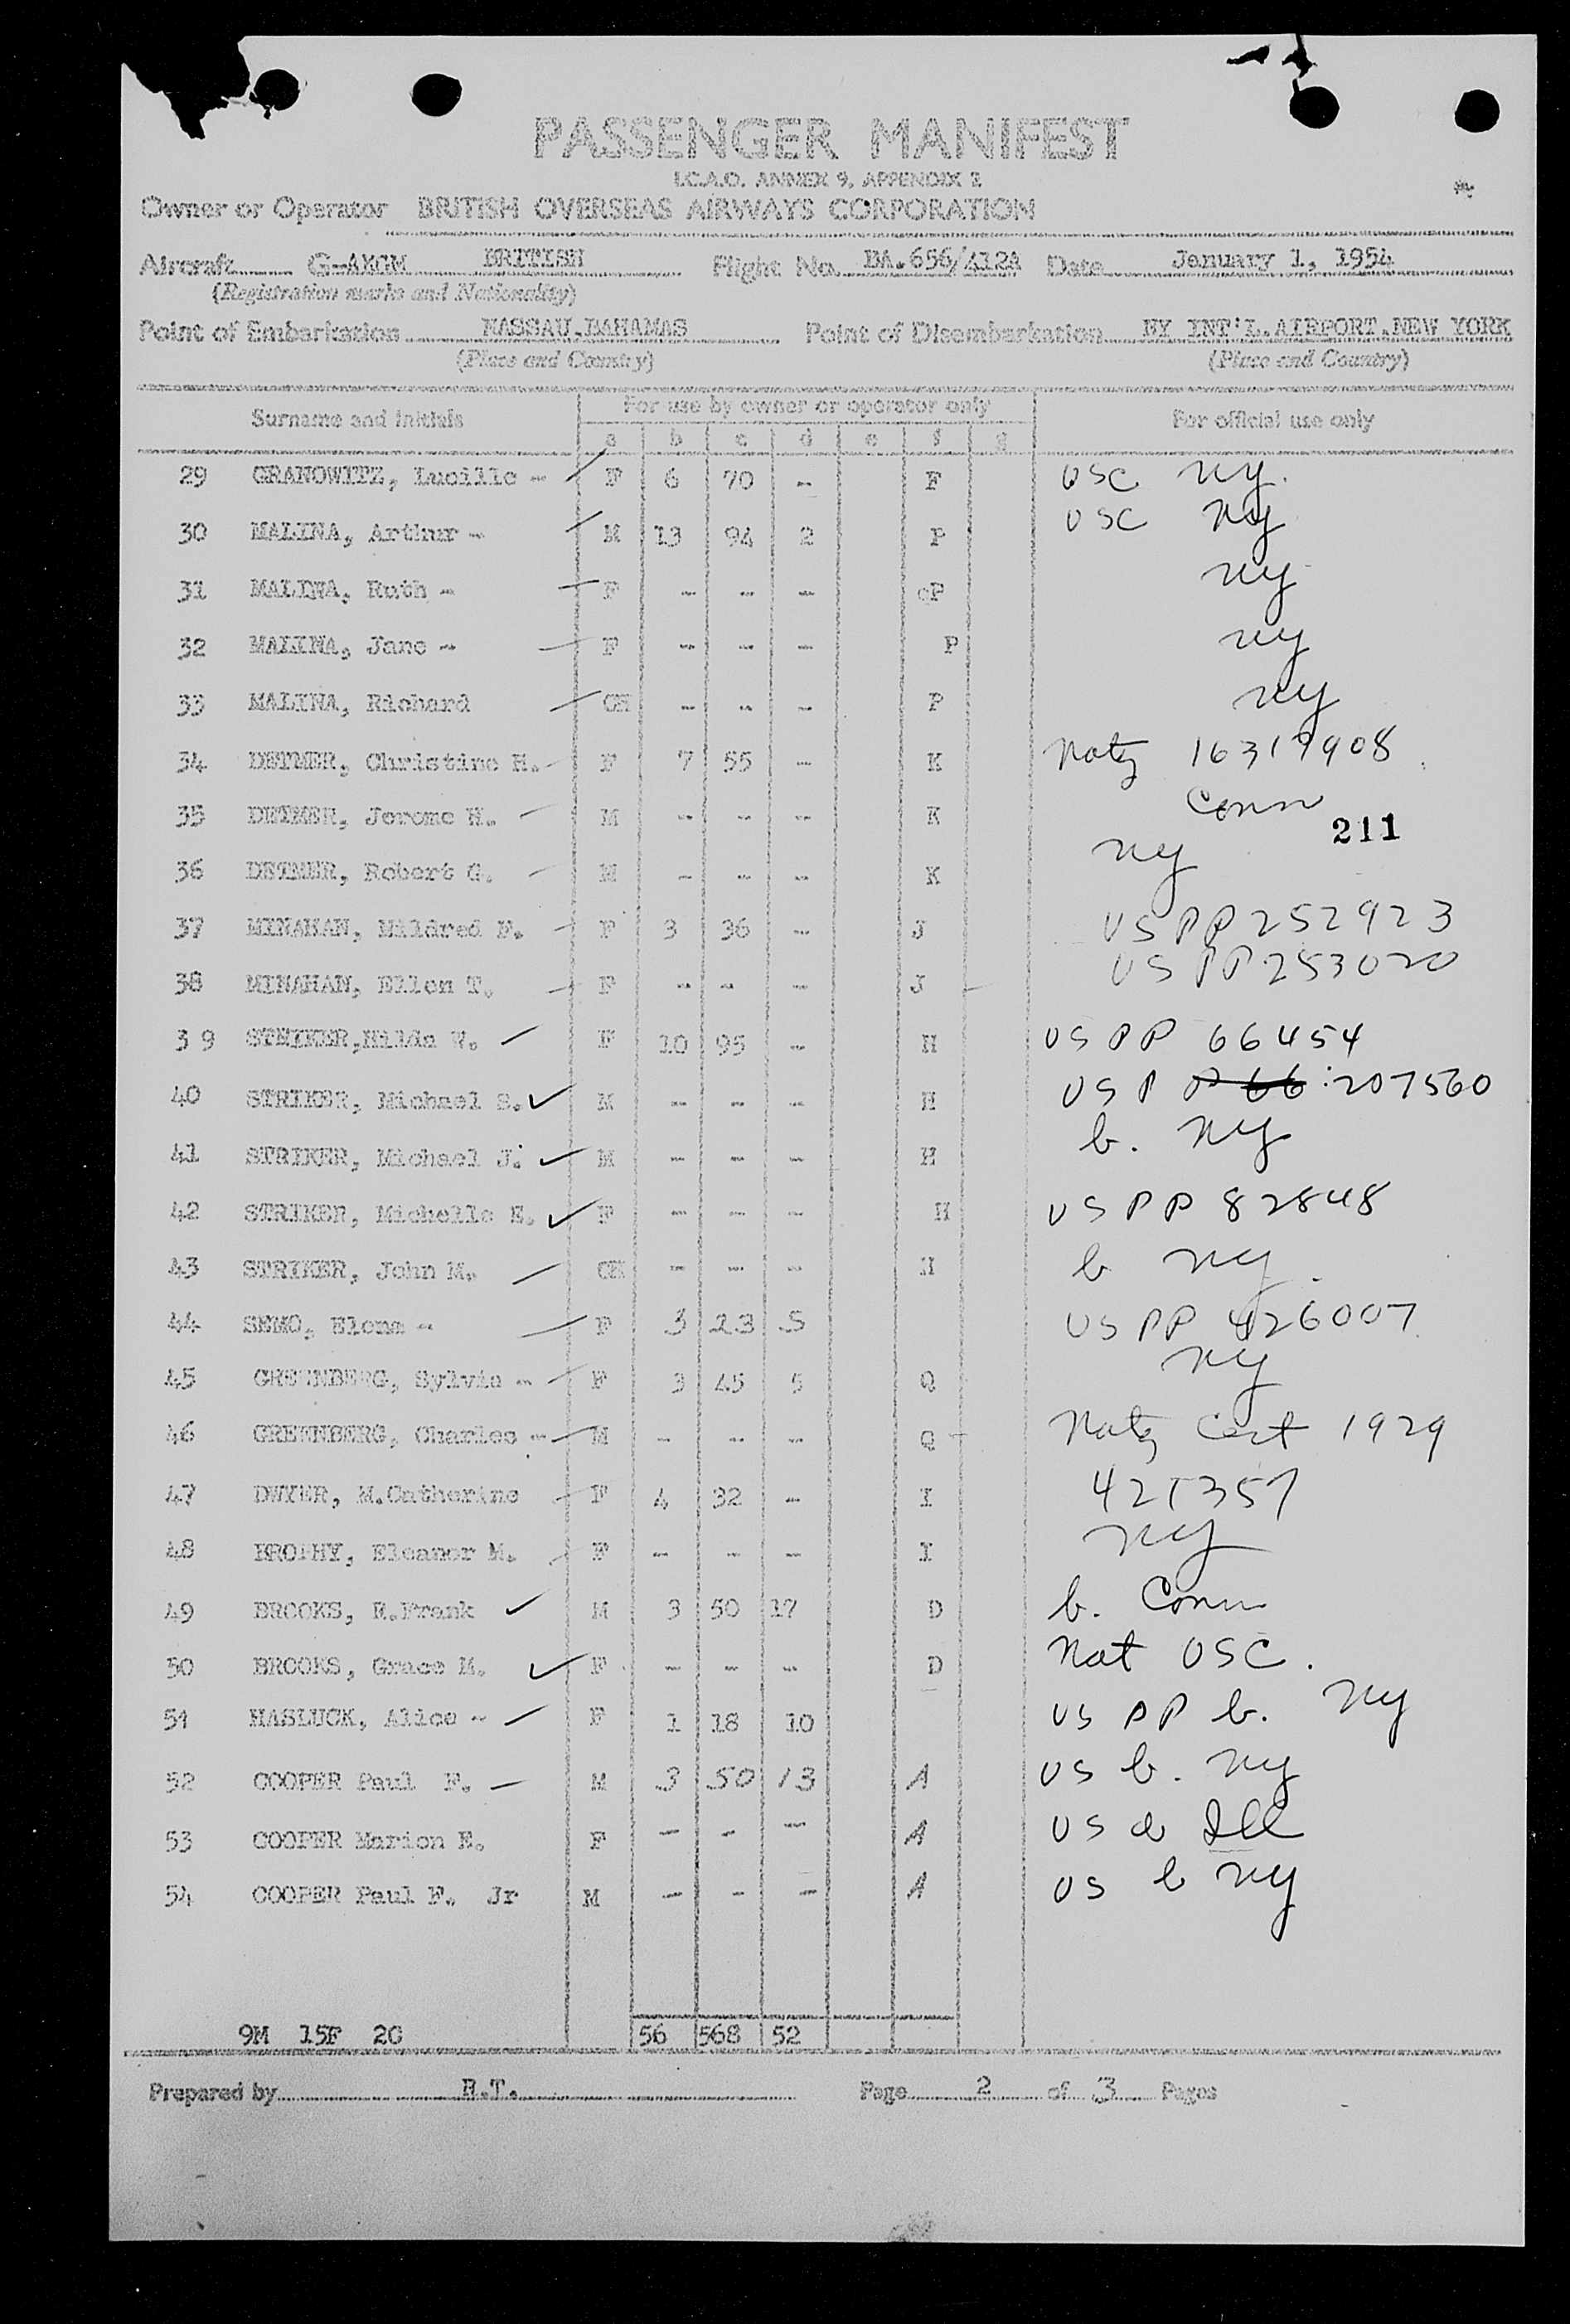 PASSENGER MANIFEST
I.C.A.O. ANNEX 9, APPENDIX 2
Owner or Operator BRITISH OVERSEAS AIRWAYS CORPORATION
Aircraft G-AKGM BRITISH Flight No. BA.656/412A Date January 1, 1954
(Registration marks and Nationality)
Point of Embarkation NASSAU.BAHAMAS Point of Disembarkation NY INT'L.AIRPORT.NEW YORK
(Place and Country) (Place and Country)
Surname and initials For use by owner or operator only For official use only
a b c d e f g
29 GRANOWITZ, Lucille - F 6 70 - F USC NY.
30 MALINA, Arthur - M 13 94 2 P USC NY
31 MALINA, Ruth - F - - - P NY
32 MALINA, Jane - F - - - P NY
33 MALINA, Richard CH - - - P NY
34 DETMER, Christine H. F 7 55 - K Natz 16319908
35 DETMER, Jerome H. M - - - K Conn
211
36 DETMER, Robert G. M - - - K NY
37 MINAHAN, Mildred F. F 3 36 - J US PP 252923
38 MINAHAN, Ellen T. F - - - J US PP 253020
39 STRIKER, Hilda W. F 10 95 - H US PP 66454
40 STRIKER, Michael S. M - - - H US P P 66 : 207560
41 STRIKER, Michael J. M - - - H b. NY
42 STRIKER, Michelle E. F - - - H US PP 82848
43 STRIKER, John M. CH - - - H b NY
44 SEMO, Elena - F 3 23 5 US PP 426007
45 GREENBERG, Sylvia - F 3 45 5 Q NY
46 GREENBERG, Charles - M - - - Q Natz Cert 1929
47 DWYER, M.Catherine F 4 32 - I 421357
48 BROPHY, Eleanor M. F - - - I NY
49 BROOKS, E.Frank M 3 50 17 D b. Conn
50 BROOKS, Grace M. F - - - D Nat USC.
51 HASLUCK, Alice - F 1 18 10 US PP b. NY
52 COOPER Paul F. M 3 50 13 A US b. NY
53 COOPER Marion E. F - - - A US b Ill
54 COOPER Paul F. Jr M - - - A US b NY
9M 15F 2C 56 568 52
Prepared by R.T. Page 2 of 3 Pages